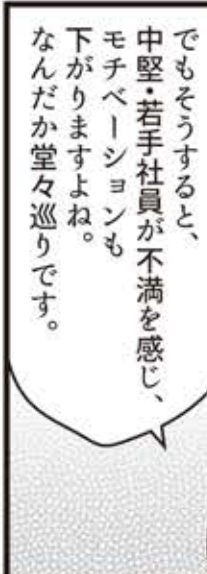 でもそうすると、
中堅・若手社員が不満を感じ、
モチベーションも
下がりますよね。
なんだか堂々巡りです。